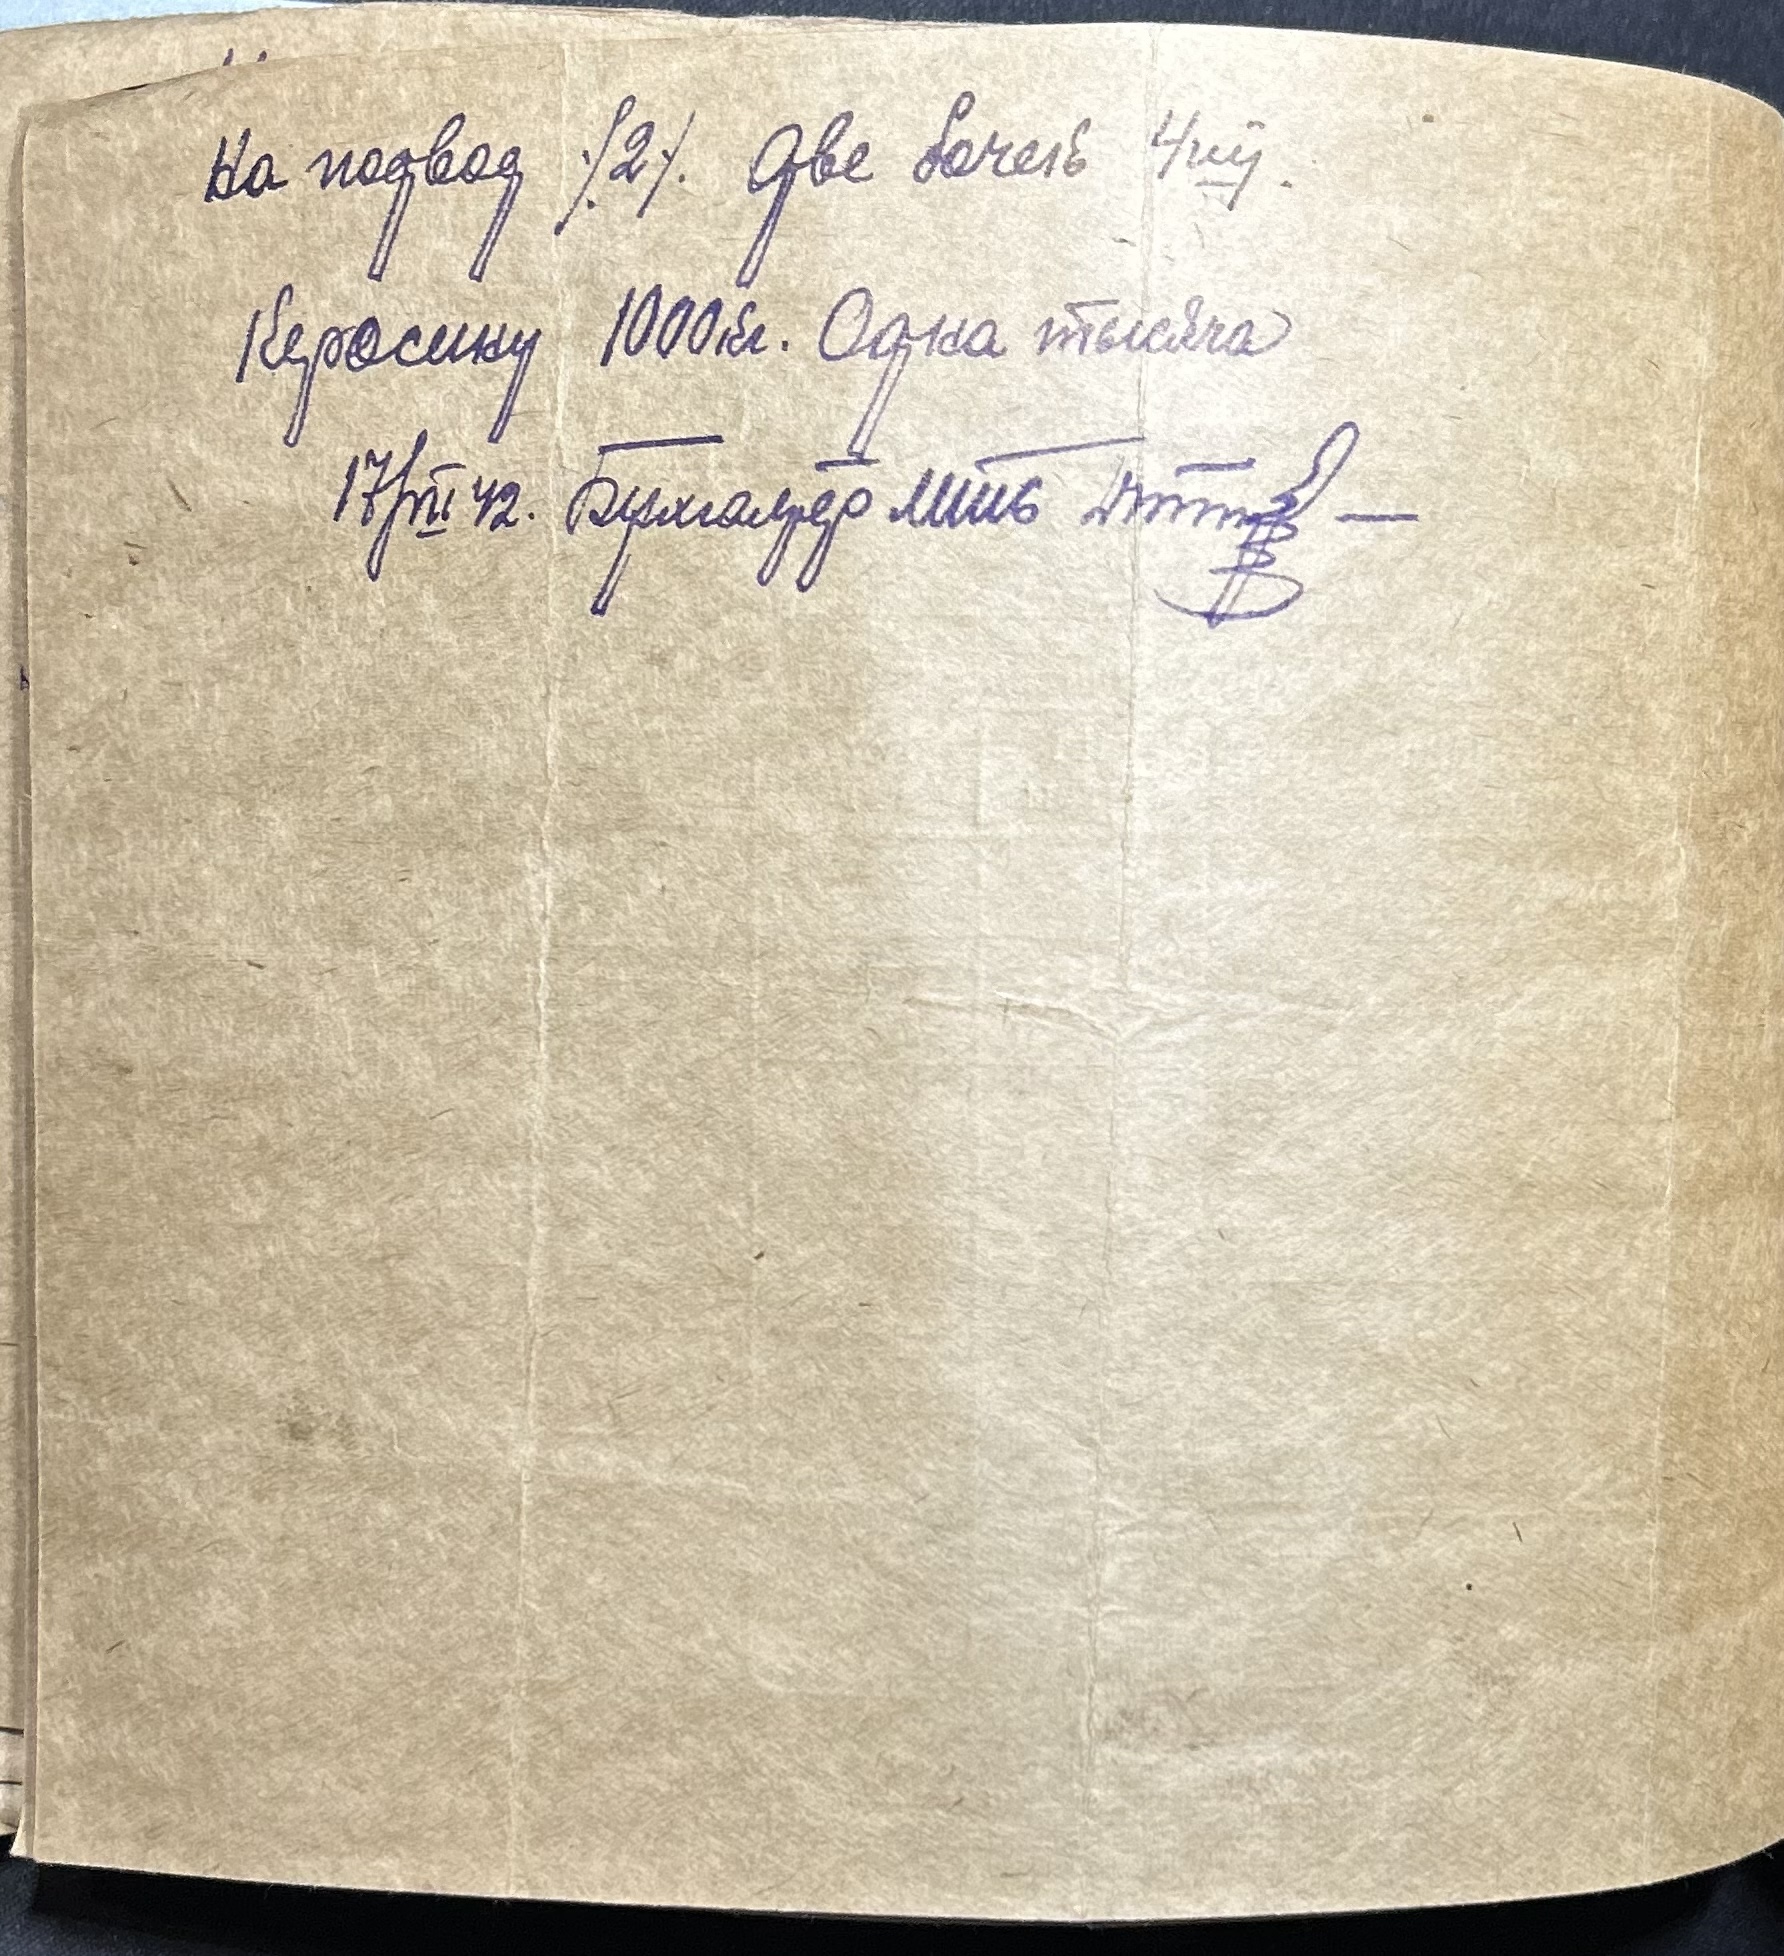 На подвод /2/. Две бочек 4шт.
Керосину 1000 кг. Одна тысяча
17/VII 42. Бухгалтер